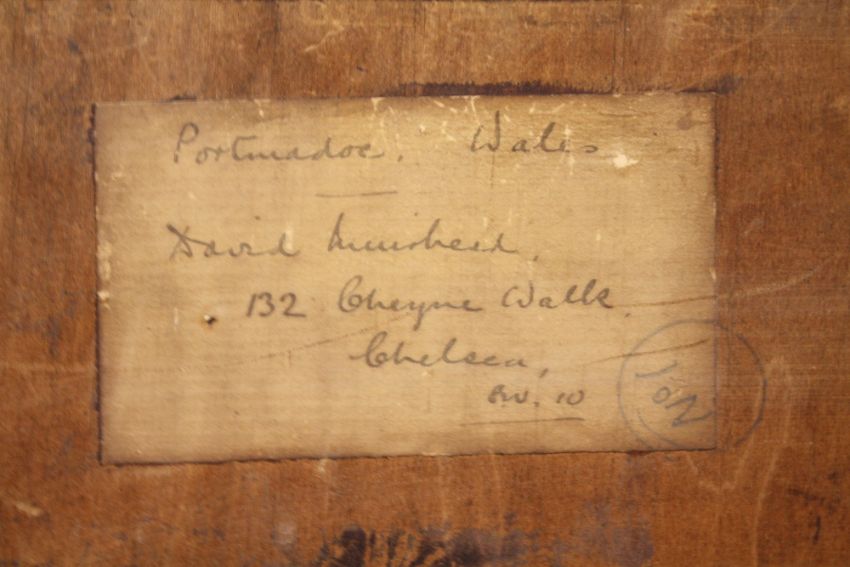 Portmadoc. Wales
David Muirhead,
132 Cheyne Walk.
Chelsea,
S.W. 10
No 1